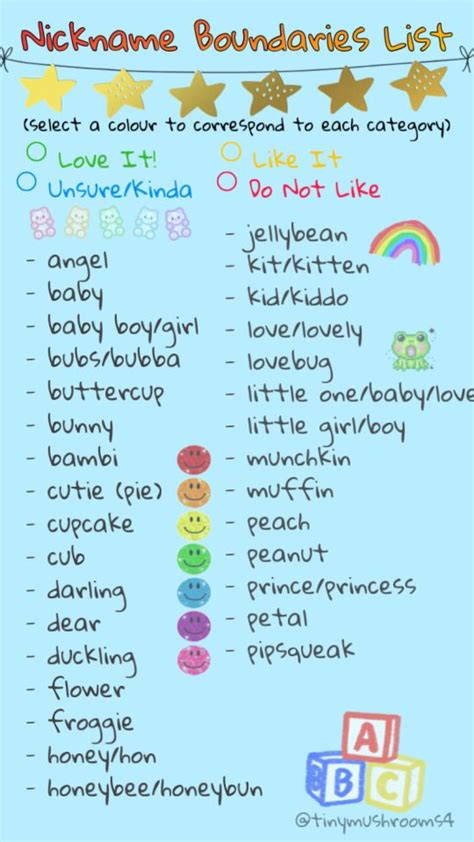 Nickname Boundaries List
(select a colour to correspond to each category)
Love It!
Like It
Unsure/Kinda
Do Not Like
- angel
- baby
- baby boy/girl
- bubs/bubba
- buttercup
- bunny
- bambi
- cutie (pie)
- cupcake
- cub
- darling
- dear
- duckling
- flower
- froggie
- honey/hon
- honeybee/honeybun
- jellybean
- kit/kitten
- kid/kiddo
- love/lovely
- lovebug
- little one/baby/love
- little girl/boy
- munchkin
- muffin
- peach
- peanut
- prince/princess
- petal
- pipsqueak
A
B C
@tinymushrooms4